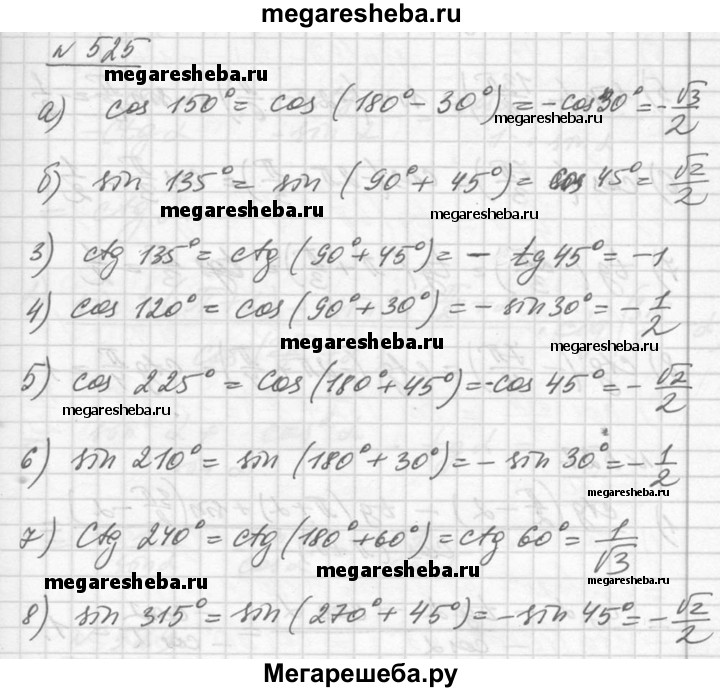 megaresheba.ru
№ 525
megaresheba.ru
а) cos 150° = cos (180° - 30°) = - cos 30° = - √3/2
megaresheba.ru
б) sin 135° = sin (90° + 45°) = cos 45° = √2/2
megaresheba.ru megaresheba.ru
3) ctg 135° = ctg (90° + 45°) = - tg 45° = -1
4) cos 120° = cos (90° + 30°) = - sin 30° = - 1/2
megaresheba.ru megaresheba.ru
5) cos 225° = cos (180° + 45°) = - cos 45° = - √2/2
megaresheba.ru
6) sin 210° = sin (180° + 30°) = - sin 30° = - 1/2
7) ctg 240° = ctg (180° + 60°) = ctg 60° = 1/√3
megaresheba.ru megaresheba.ru megaresheba.ru
8) sin 315° = sin (270° + 45°) = - sin 45° = - √2/2
Мегарешеба.ру